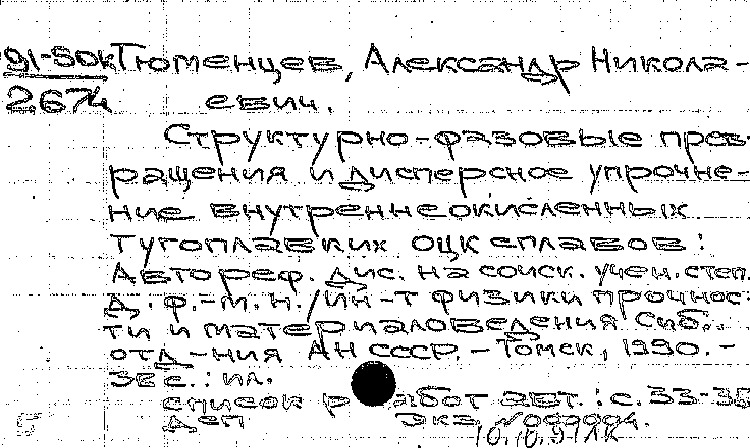 91-50к Тюменцев, Александр Никола-
2674 евич.
Структурно-фазовые прев-
ращения и дисперсное упрочне-
ние внутреннеокисленных
тугоплавких ОЦК сплавов:
Автореф. дис. на соиск. учен. степ.
д. ф.-м. н. / Ин-т физики прочнос-
ти и материаловедения Сиб.
отд-ния АН СССР. - Томск, 1990. -
с.: ил.
список работ авт.: с. 33-36
Деп экз